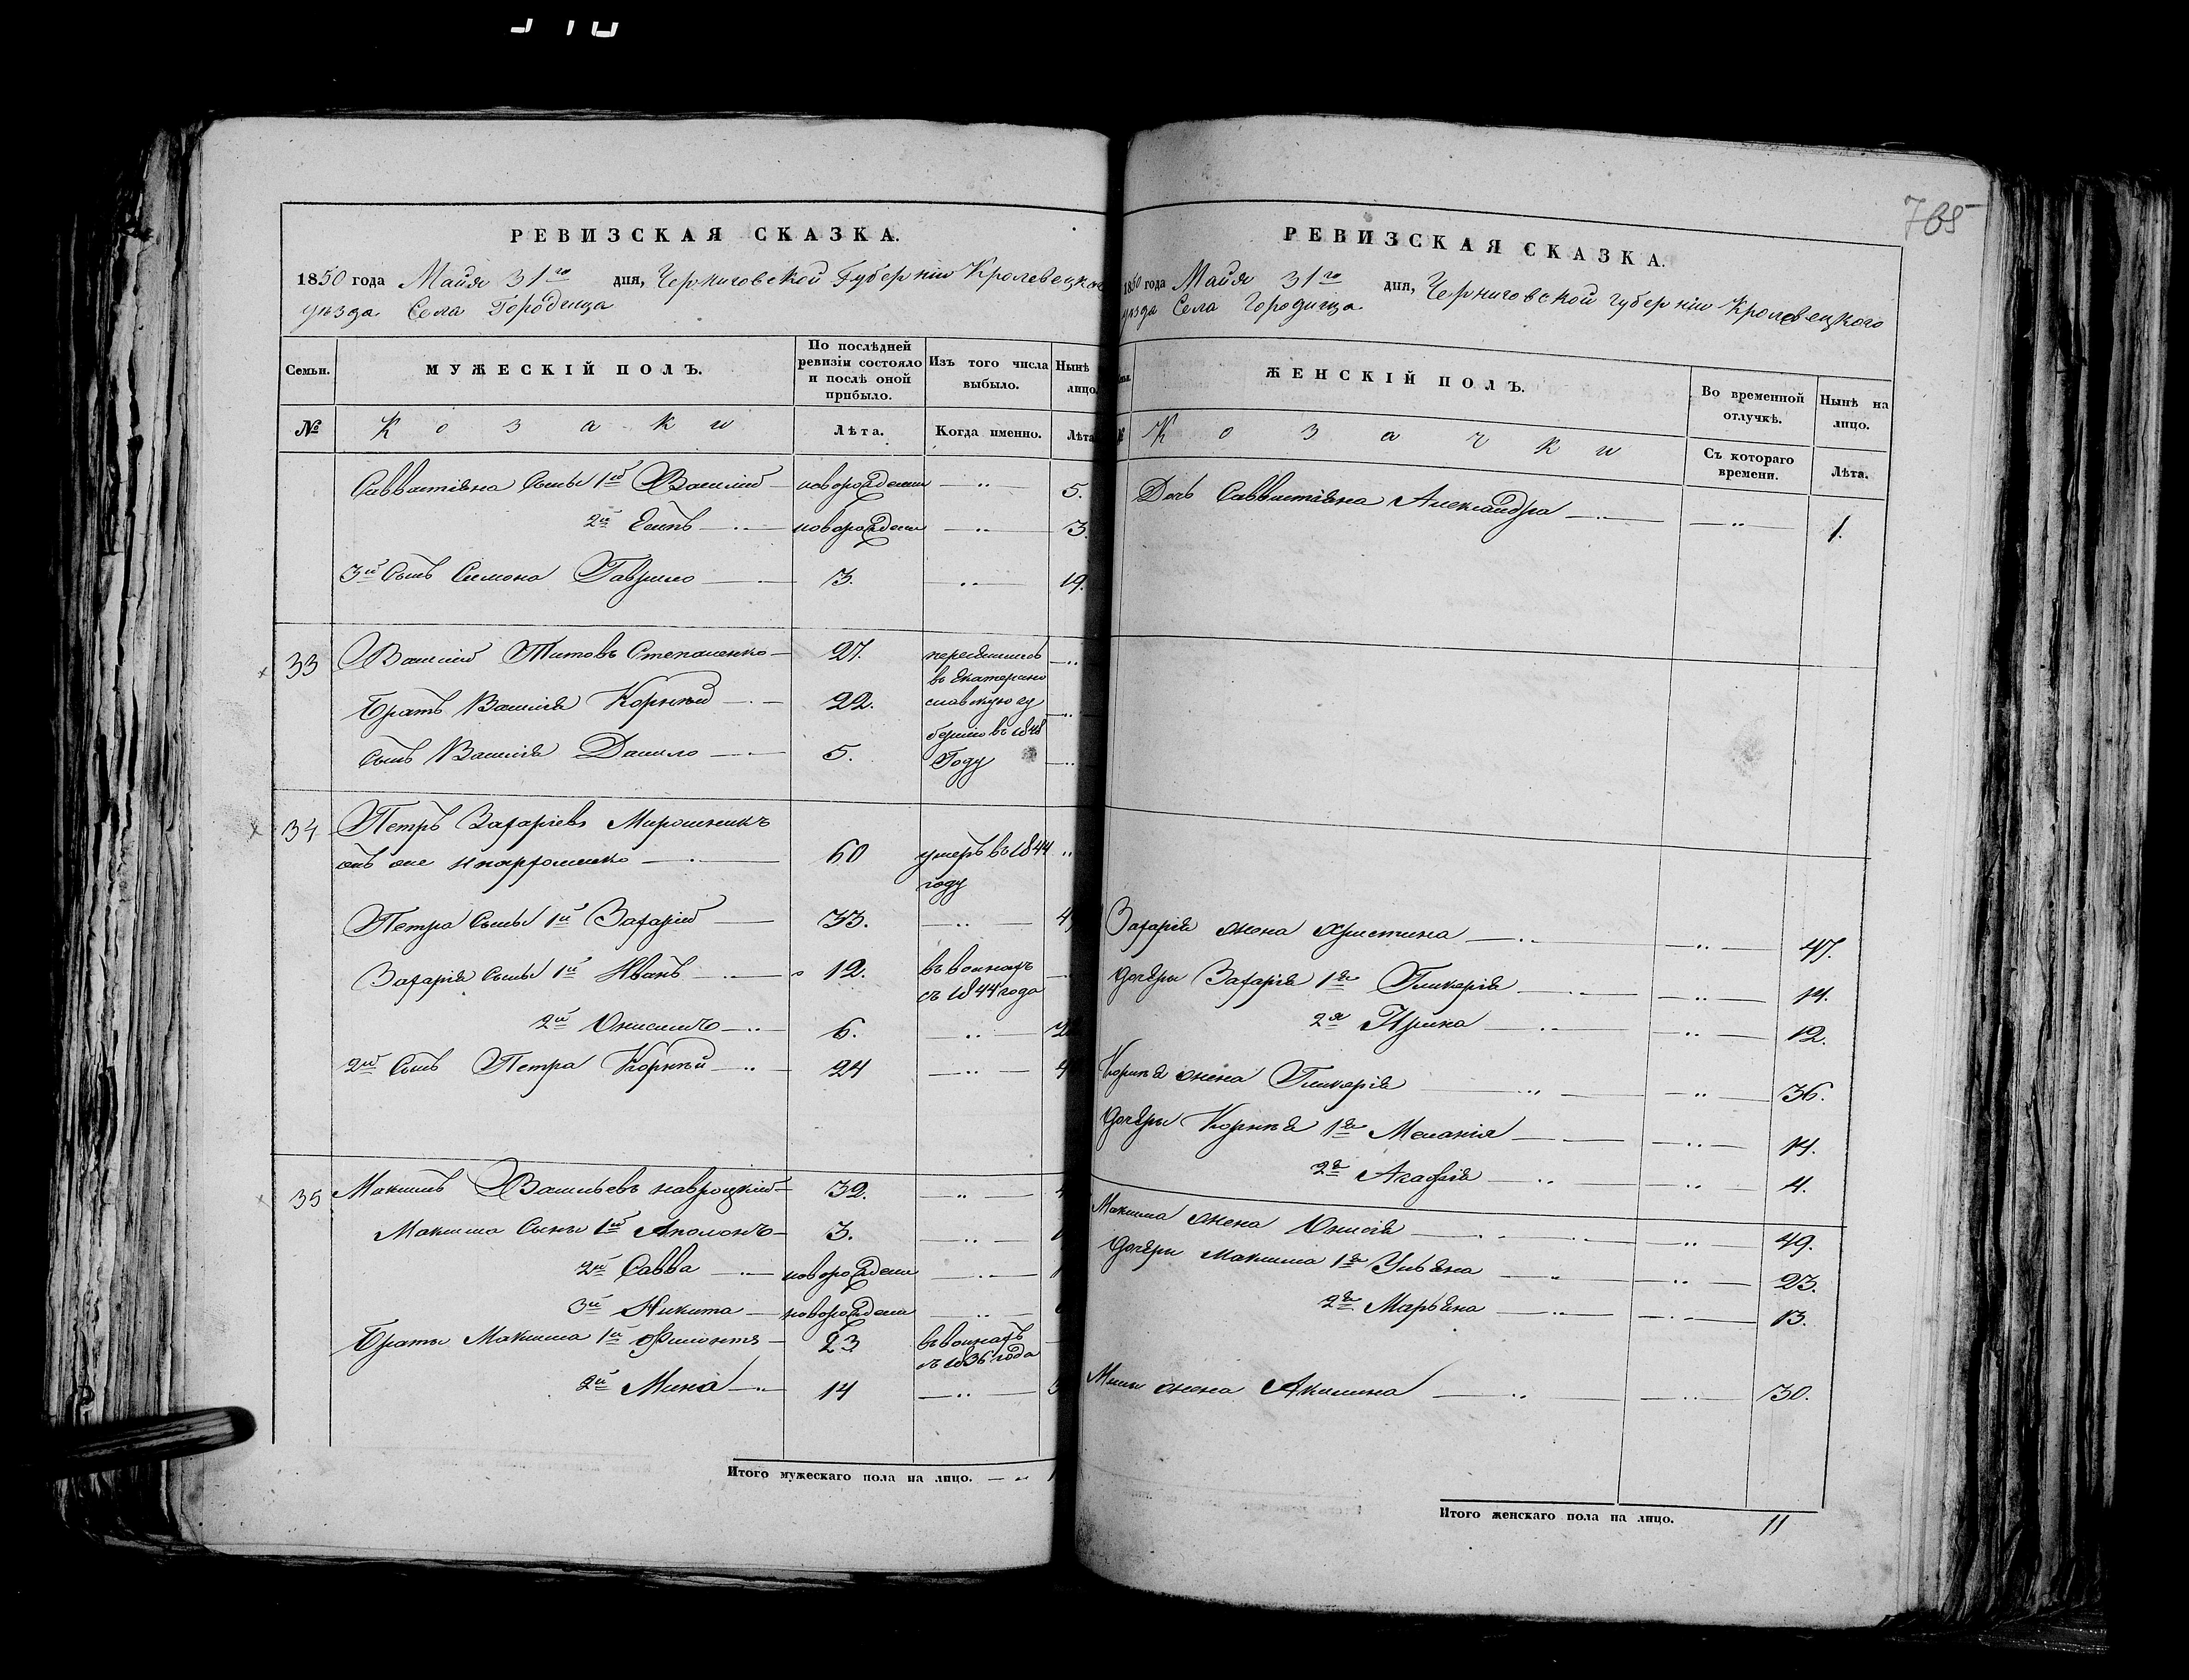 РЕВИЗСКАЯ СКАЗКА.
1850 года Майя 31го дня, Черниговской Губернiи Кролевецкого
уѣзда Села Городища
Семьи.
МУЖЕСКІЙ ПОЛЪ.
По послѣдней ревизіи состояло и послѣ оной прибыло.
Изъ того числа выбыло.
Нынѣ лицо.
№
Козаки
Лѣта.
Когда именно.
Лѣта
Савватіяна Сыны 1й Василій новорожденн — 5.
2й новорожден — 3.
3й Сынъ Симона Гаврило — 3. — 19.
33 Василій Титовъ Степаненко — 27. переселились
въ Екатерино
Братъ Василія Корнѣй — 22. славскую гу
бернію въ 1848
Сынъ Василія Данило — 5. Году
34 Петръ Захаріевъ Мирошникъ
онъ же — 60 умеръ въ 1844
году
Петра Сыны 1й Захарій — 33. —
Захарія Сыны 1й Иванъ — 12. въ воинахъ
съ 1844 года
2й Онисимъ — 6. —
2й Сынъ Петра Корнѣй — 24 —
35 Максимъ Васильевъ Навроцкій — 32. —
Максима Сыны 1й Аполонъ — 3. —
2й Савва — новорожден —
3й Никита — новорожден —
Браты Максима 1й Филонъ — 23 въ воинахъ
съ 1836 года
2й Мина — 14 —
Итого мужескаго пола на лицо.
765
РЕВИЗСКАЯ СКАЗКА.
1850 года Майя 31го дня, Черниговской губернiи Кролевецкого
уѣзда Села Городища
ЖЕНСКІЙ ПОЛЪ.
Во временной отлучкѣ.
Нынѣ на лицо.
№
Козачки
Съ котораго времени.
Лѣта.
Дочь Савватіяна Александра — 1.
Захарія жена Христина — 47.
Дочѣры Захарія 1я Гликерія — 14.
2я Ирина — 12.
Корнѣя жена Гликерія — 36.
Дочѣры Корнѣя 1я Меланія — 14.
2я Агафія — 4.
Максима жена Онисія — 49.
Дочѣры Максима 1я Ульяна — 23.
2я Марьяна — 13.
Мины жена Акилина — 30.
Итого женскаго пола на лицо. 11